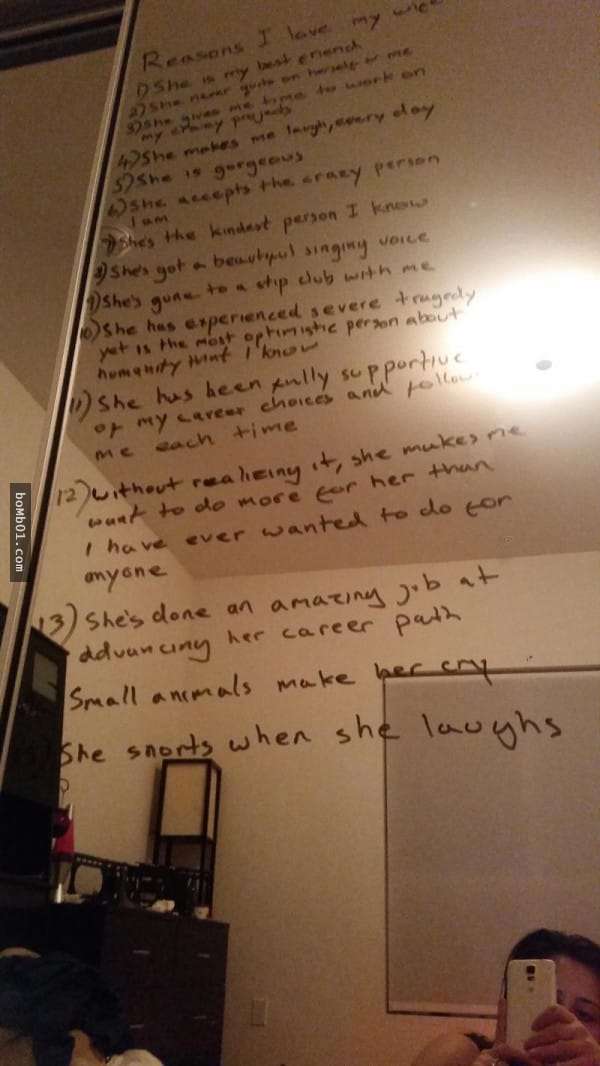 Reasons I love my wife
1) She is my best friend
2) She never quits on herself or me
3) She gives me time to work on
my crazy projects
4) She makes me laugh, every day
5) She is gorgeous
6) She accepts the crazy person
I am
7) She's the kindest person I know
8) She's got a beautiful singing voice
9) She's gone to a stip club with me
10) She has experienced severe tragedy
yet is the most optimistic person about
humanity that I know
11) She has been fully supportive
of my career choices and follow
me each time
12) Without realizing it, she makes me
want to do more for her than
I have ever wanted to do for
anyone
13) She's done an amazing job at
advancing her career path
Small animals make her cry
She snorts when she laughs
boMb01.com